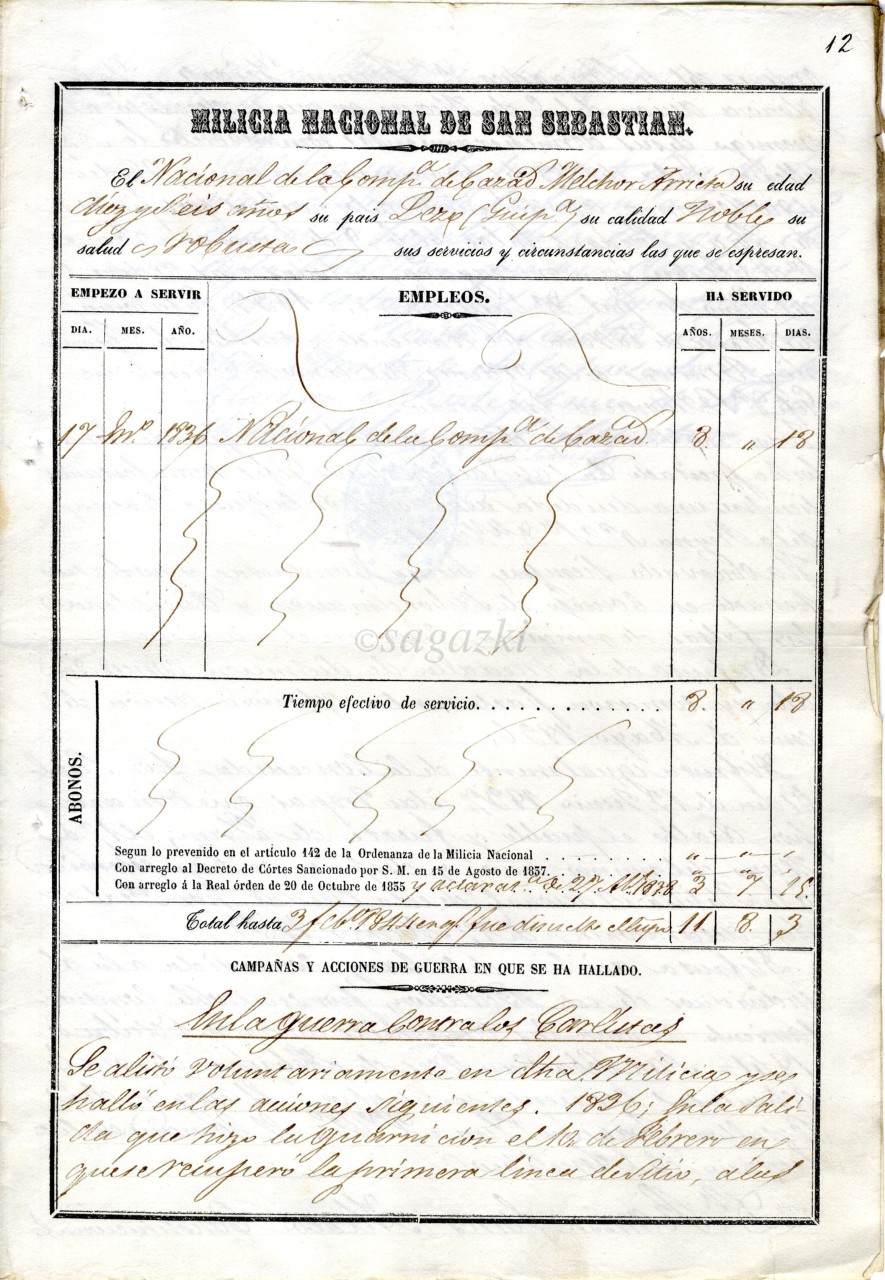 12
MILICIA NACIONAL DE SAN SEBASTIAN.
El Nacional de la Comp.ª de Cazad. Melchor Arrieta su edad
diez y seis años su pais Lezo (Guip.ª) su calidad Noble su
salud robusta sus servicios y circunstancias las que se espresan.
EMPEZO A SERVIR
EMPLEOS.
HA SERVIDO
DIA. MES. AÑO.
AÑOS. MESES. DIAS.
17 En.º 1836 Nacional de la Comp.ª de Cazad. 8. " 18
©sagazki
ABONOS.
Tiempo efectivo de servicio. 8. " 18
Segun lo prevenido en el artículo 142 de la Ordenanza de la Milicia Nacional " " "
Con arreglo al Decreto de Córtes Sancionado por S. M. en 15 de Agosto de 1837. " " "
Con arreglo á la Real órden de 20 de Octubre de 1835 y aclarat.ª de 27 1838 3 7 15.
Total hasta 3 feb.º 1844 en q.e fue disuelto 11 8. 3
CAMPAÑAS Y ACCIONES DE GUERRA EN QUE SE HA HALLADO.
En la guerra contra los Carlistas
Se alistó voluntariamente en dha. Milicia y se
halló en las acciones siguientes. 1836; En la sali-
da que hizo la guarnicion el de Febrero en
que se recuperó la primera linea de sitio, á las